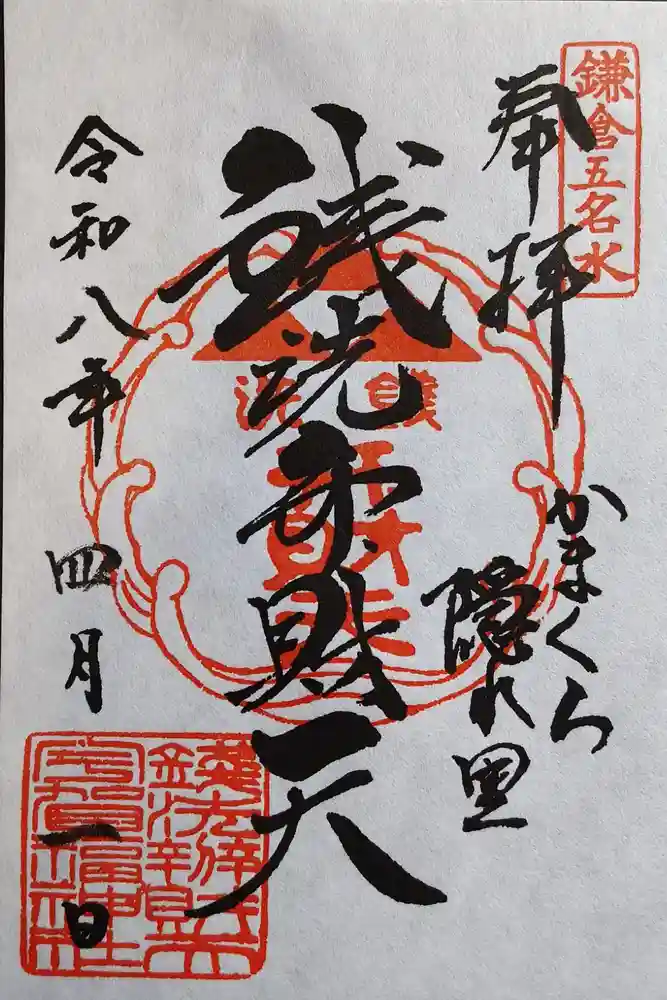 鎌倉五名水
奉拝
かまくら
隠れ里
銭洗弁財天
銭洗
令和八年四月一日
銭洗弁財天
宇賀福神社